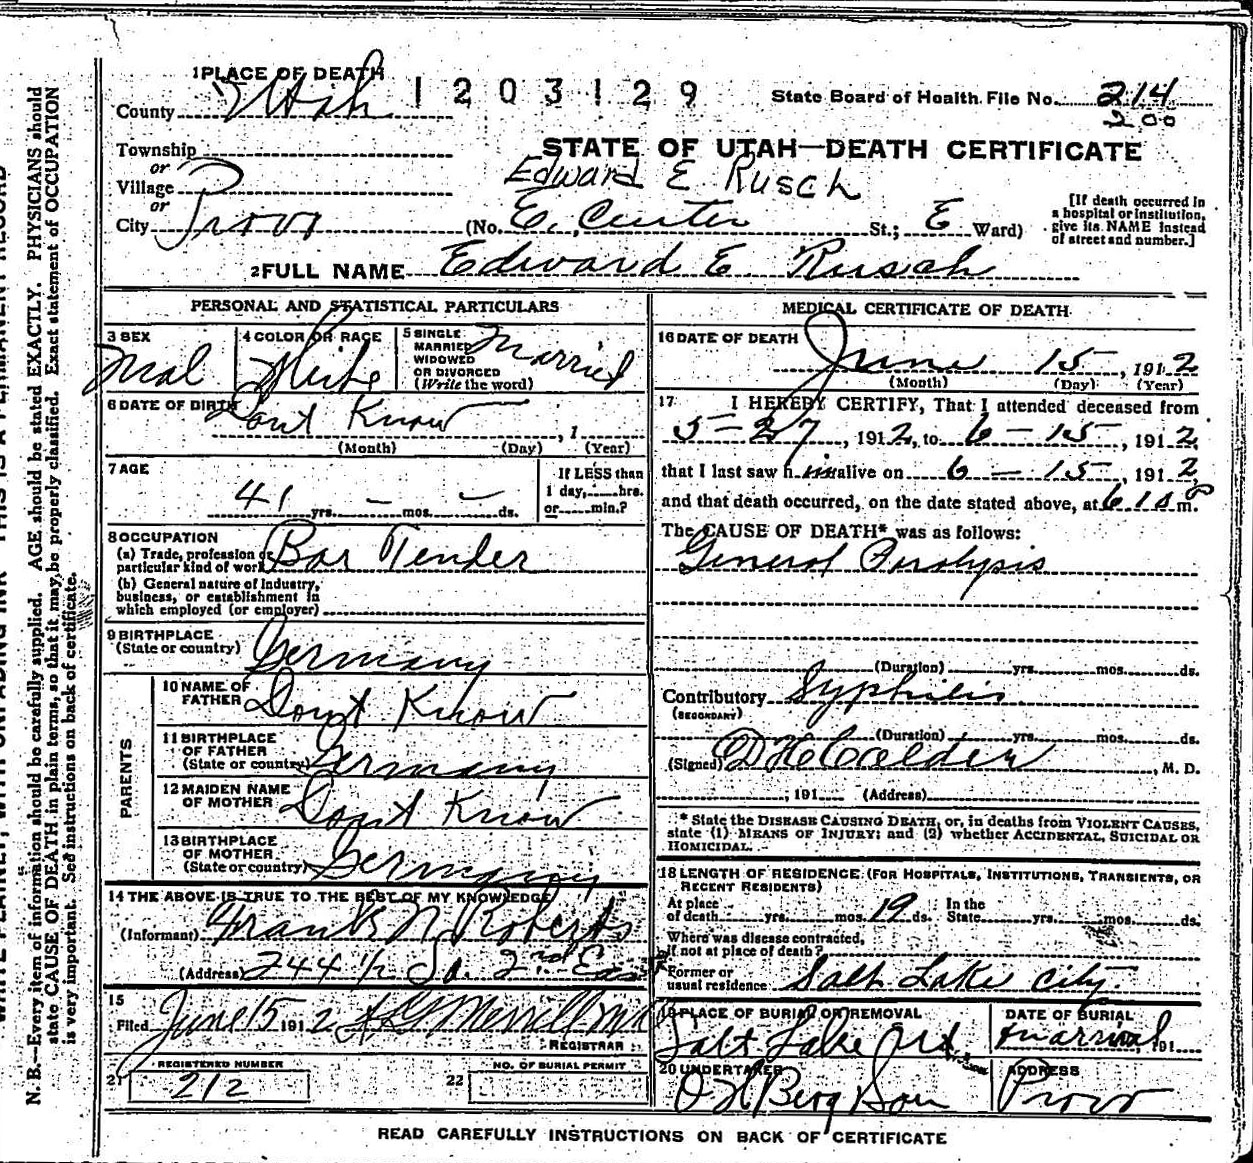 1 PLACE OF DEATH
County Utah
1203129
State Board of Health File No. 214
200
Township
or
Village
or
City Provo
STATE OF UTAH—DEATH CERTIFICATE
Edward E Rusch
(No. E. Center St.; E Ward)
[If death occurred in
a hospital or institution,
give its NAME instead
of street and number.]
2 FULL NAME Edward E. Rusch
PERSONAL AND STATISTICAL PARTICULARS
3 SEX
Mal
4 COLOR OR RACE
White
5 SINGLE
MARRIED
WIDOWED
OR DIVORCED
(Write the word)
Married
6 DATE OF BIRTH
Dont Know
(Month) (Day) , 1 (Year)
7 AGE
41 yrs. — mos. — ds.
If LESS than
1 day, hrs.
or min.?
8 OCCUPATION
(a) Trade, profession or
particular kind of work Bar Tender
(b) General nature of Industry,
business, or establishment in
which employed (or employer)
9 BIRTHPLACE
(State or country) Germany
PARENTS
10 NAME OF
FATHER Dont Know
11 BIRTHPLACE
OF FATHER
(State or country) Germany
12 MAIDEN NAME
OF MOTHER Dont Know
13 BIRTHPLACE
OF MOTHER
(State or country) Germany
14 THE ABOVE IS TRUE TO THE BEST OF MY KNOWLEDGE
(Informant) Frank N. Roberts
(Address) 244 1/2 So. 2nd East
15
Filed June 15 1912
REGISTRAR
REGISTERED NUMBER
21 212
NO. OF BURIAL PERMIT
22
MEDICAL CERTIFICATE OF DEATH
16 DATE OF DEATH
June 15, 1912
(Month) (Day) (Year)
17 I HEREBY CERTIFY, That I attended deceased from
5-27, 1912, to 6-15, 1912
that I last saw h im alive on 6-15, 1912
and that death occurred, on the date stated above, at 6 10 P m.
The CAUSE OF DEATH* was as follows:
General Paralysis
(Duration) yrs. mos. ds.
Contributory Syphilis
(SECONDARY)
(Duration) yrs. mos. ds.
(Signed) D H Calder, M. D.
, 191 (Address)
* State the DISEASE CAUSING DEATH, or, in deaths from VIOLENT CAUSES,
state (1) MEANS OF INJURY; and (2) whether ACCIDENTAL, SUICIDAL OR
HOMICIDAL.
18 LENGTH OF RESIDENCE (FOR HOSPITALS, INSTITUTIONS, TRANSIENTS, OR
RECENT RESIDENTS)
At place
of death yrs. mos. 19 ds.
In the
State yrs. mos. ds.
Where was disease contracted,
if not at place of death?
Former or
usual residence Salt Lake City
19 PLACE OF BURIAL OR REMOVAL
Salt Lake
DATE OF BURIAL
on arrival, 191
20 UNDERTAKER
O H Berg Son
ADDRESS
Provo
READ CAREFULLY INSTRUCTIONS ON BACK OF CERTIFICATE
N. B.—Every item of information should be carefully supplied. AGE should be stated EXACTLY. PHYSICIANS should
state CAUSE OF DEATH in plain terms, so that it may be properly classified. Exact statement of OCCUPATION
is very important. See instructions on back of certificate.